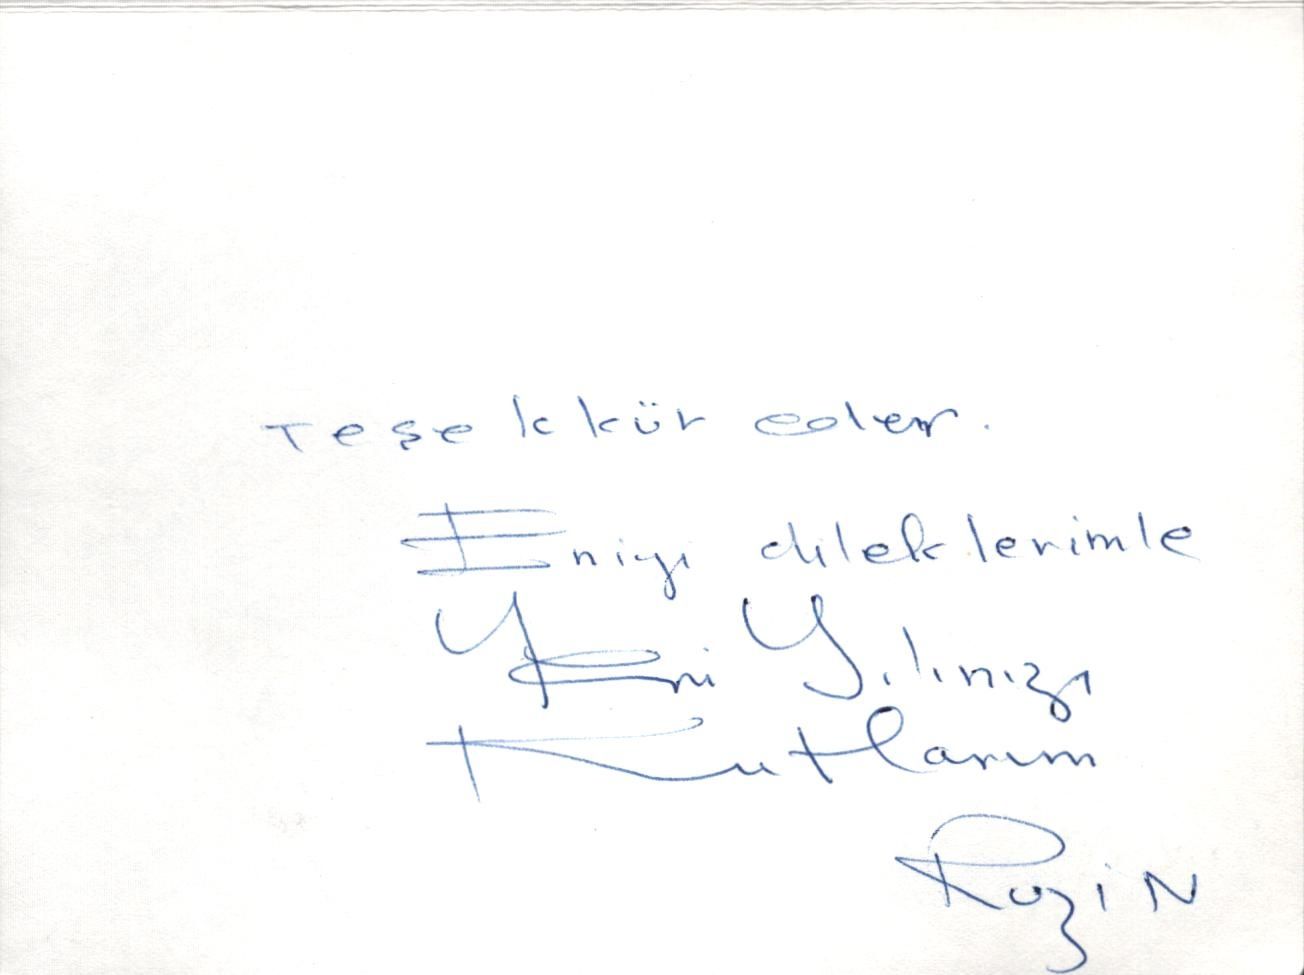 Teşekkür eder.
Eniyi dileklerimle
Yeni Yılınızı
Kutlarım
Rozin